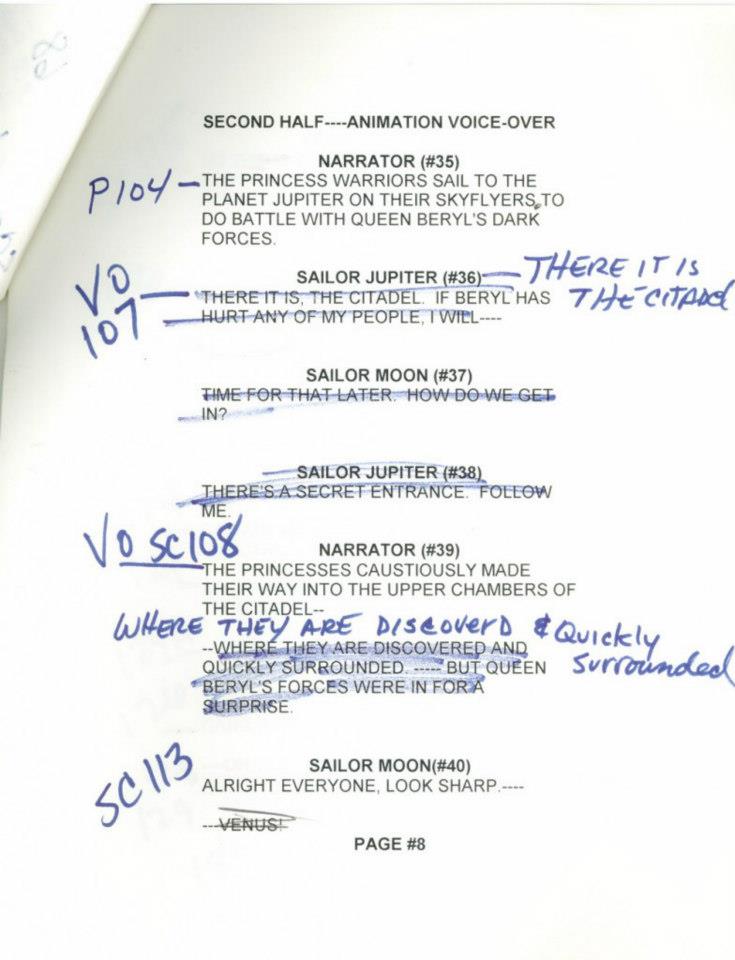 SECOND HALF----ANIMATION VOICE-OVER
NARRATOR (#35)
P104 –
THE PRINCESS WARRIORS SAIL TO THE
PLANET JUPITER ON THEIR SKYFLYERS TO
DO BATTLE WITH QUEEN BERYL'S DARK
FORCES.
SAILOR JUPITER (#36)
THERE IT IS
THE CITADEL
VO
107
THERE IT IS, THE CITADEL. IF BERYL HAS
HURT ANY OF MY PEOPLE, I WILL----
SAILOR MOON (#37)
TIME FOR THAT LATER. HOW DO WE GET
IN?
SAILOR JUPITER (#38)
THERE'S A SECRET ENTRANCE. FOLLOW
ME.
VO SC108
NARRATOR (#39)
THE PRINCESSES CAUSTIOUSLY MADE
THEIR WAY INTO THE UPPER CHAMBERS OF
THE CITADEL--
WHERE THEY ARE DISCOVERD & Quickly
Surrounded
--WHERE THEY ARE DISCOVERED AND
QUICKLY SURROUNDED. ----- BUT QUEEN
BERYL'S FORCES WERE IN FOR A
SURPRISE.
SC113
SAILOR MOON(#40)
ALRIGHT EVERYONE, LOOK SHARP.----
---VENUS!
PAGE #8